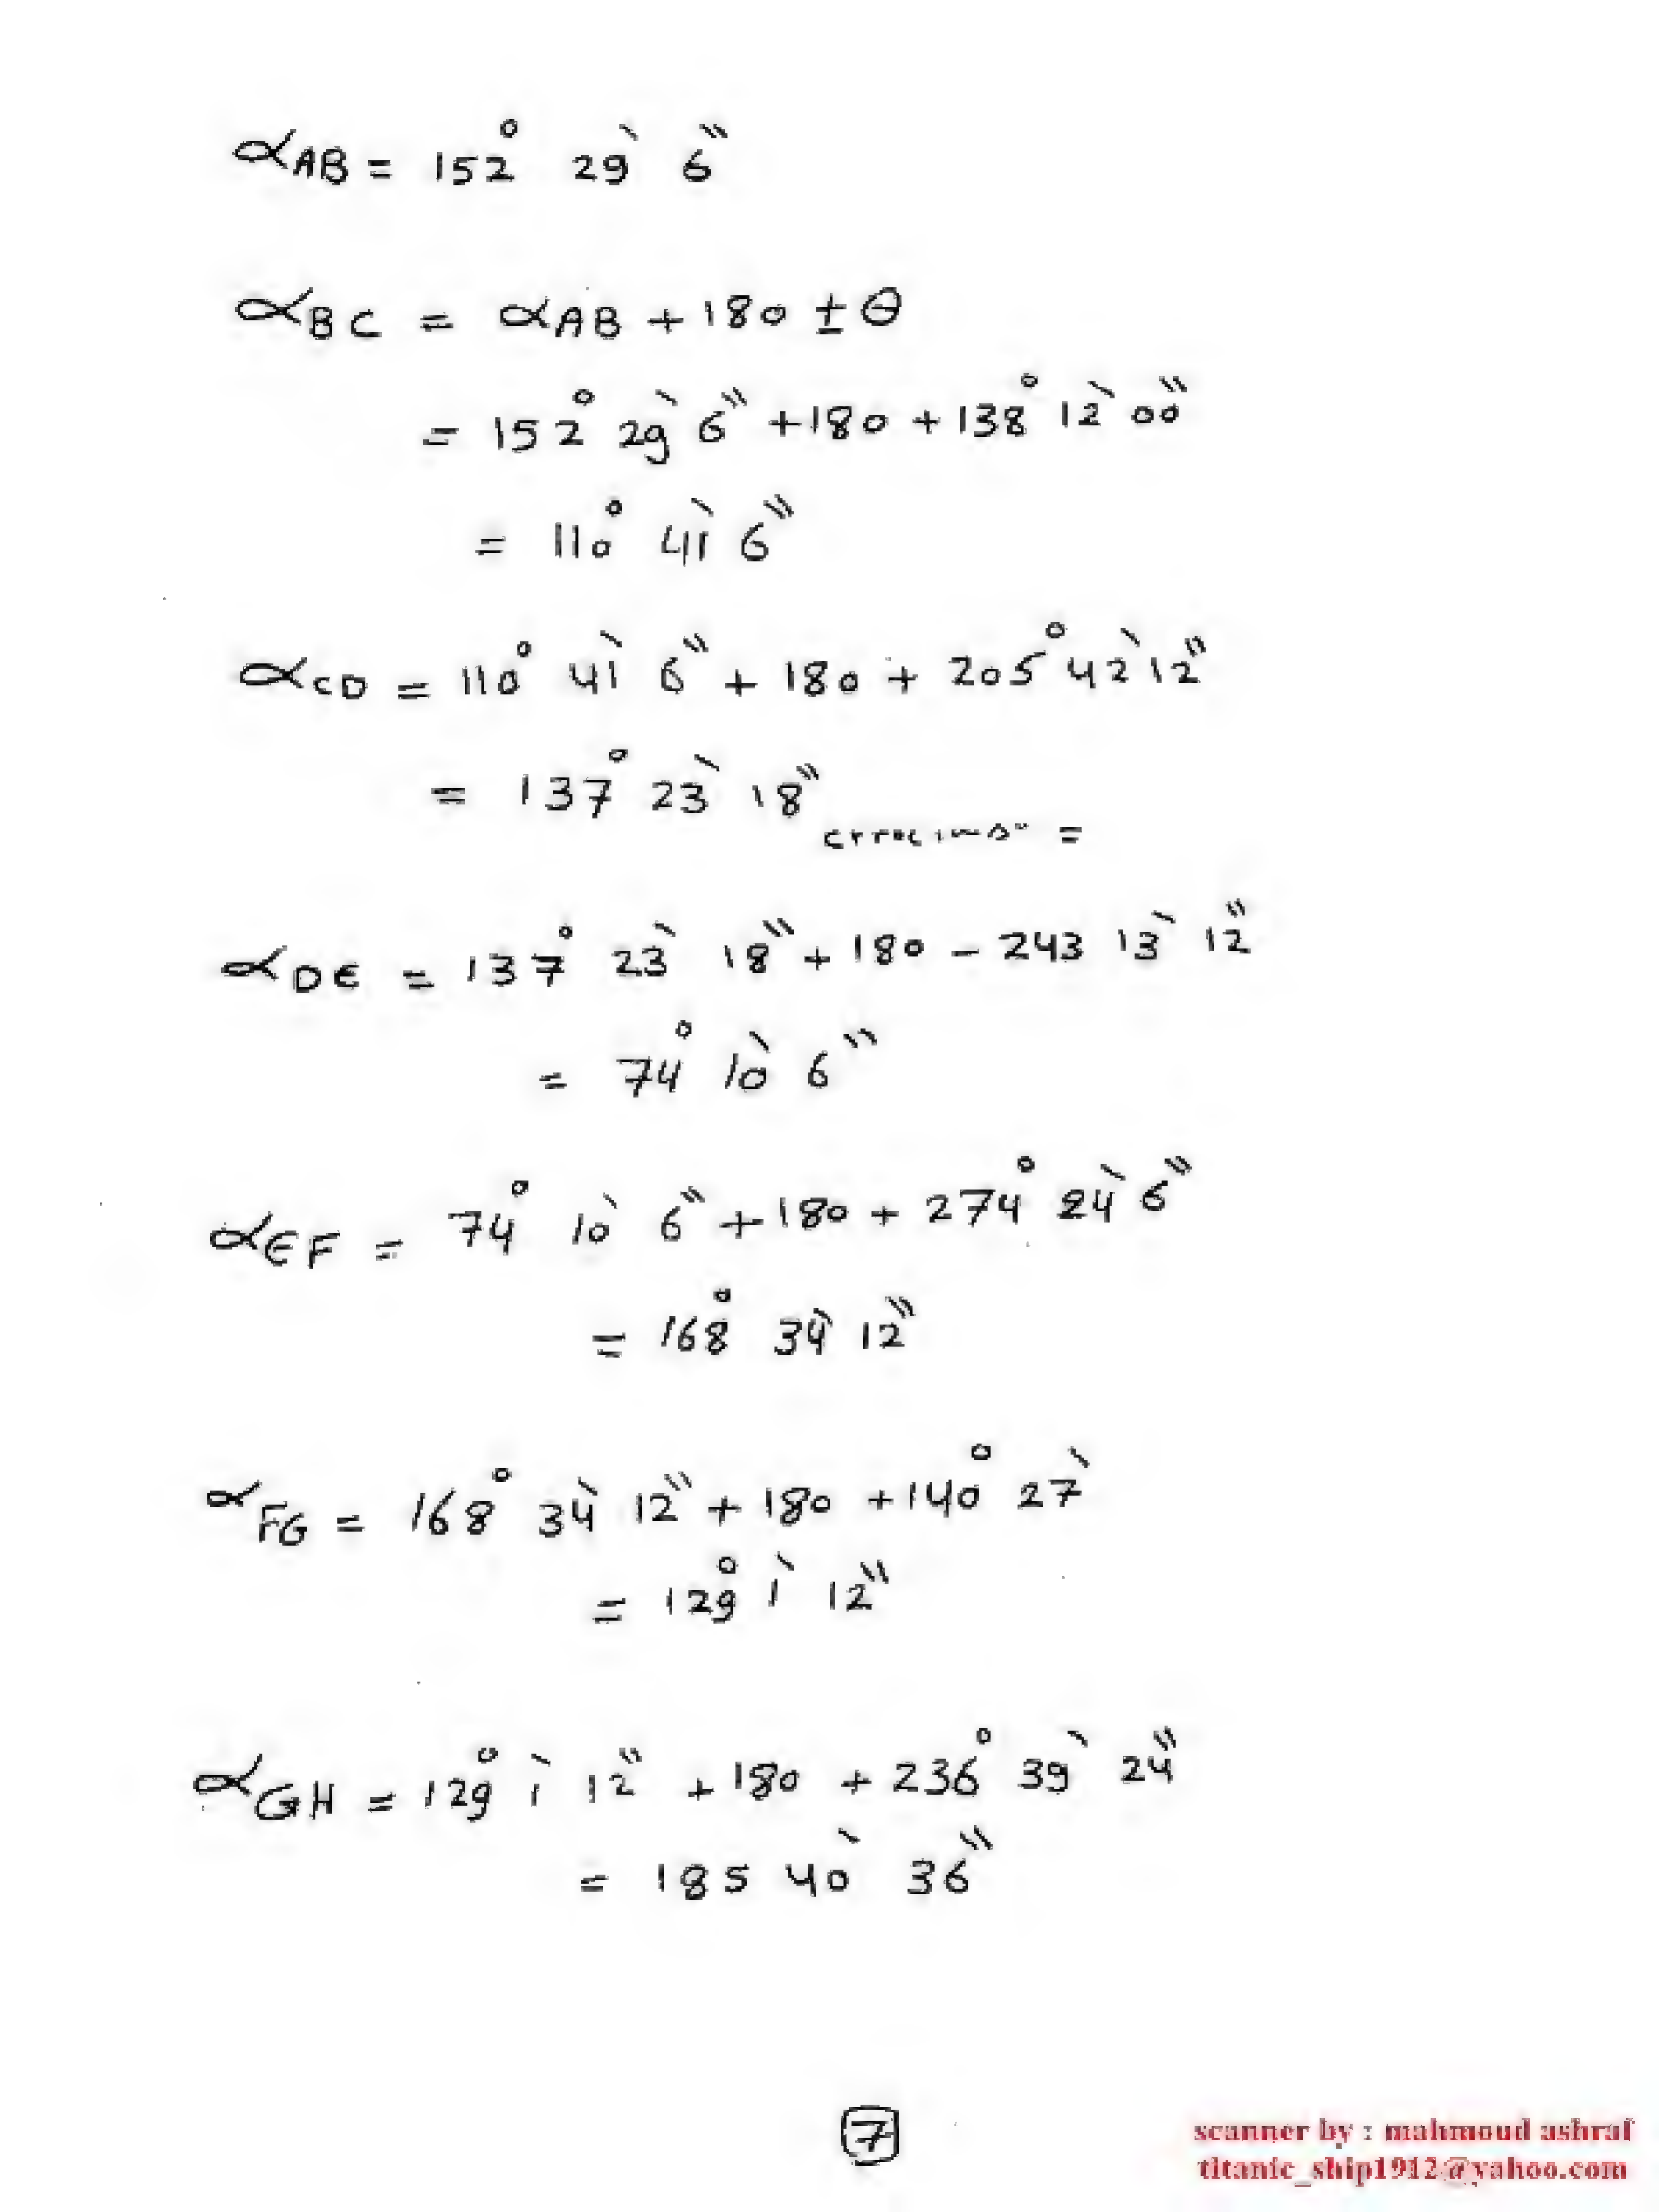 αAB = 152° 29` 6``
αBC = αAB + 180 ± θ
= 152° 29` 6`` + 180 + 138° 12` 00``
= 110° 41` 6``
αCD = 110° 41` 6`` + 180 + 205° 42` 12``
= 137° 23` 18``
=
αDE = 137° 23` 18`` + 180 - 243 13` 12``
= 74° 10` 6``
αEF = 74° 10` 6`` + 180 + 274° 24` 6``
= 168° 34` 12``
αFG = 168° 34` 12`` + 180 + 140° 27`
= 129° 1` 12``
αGH = 129° 1` 12`` + 180 + 236° 39` 24``
= 185 40` 36``
7
scanner by : mahmoud ashraf
titanic_ship1912@yahoo.com